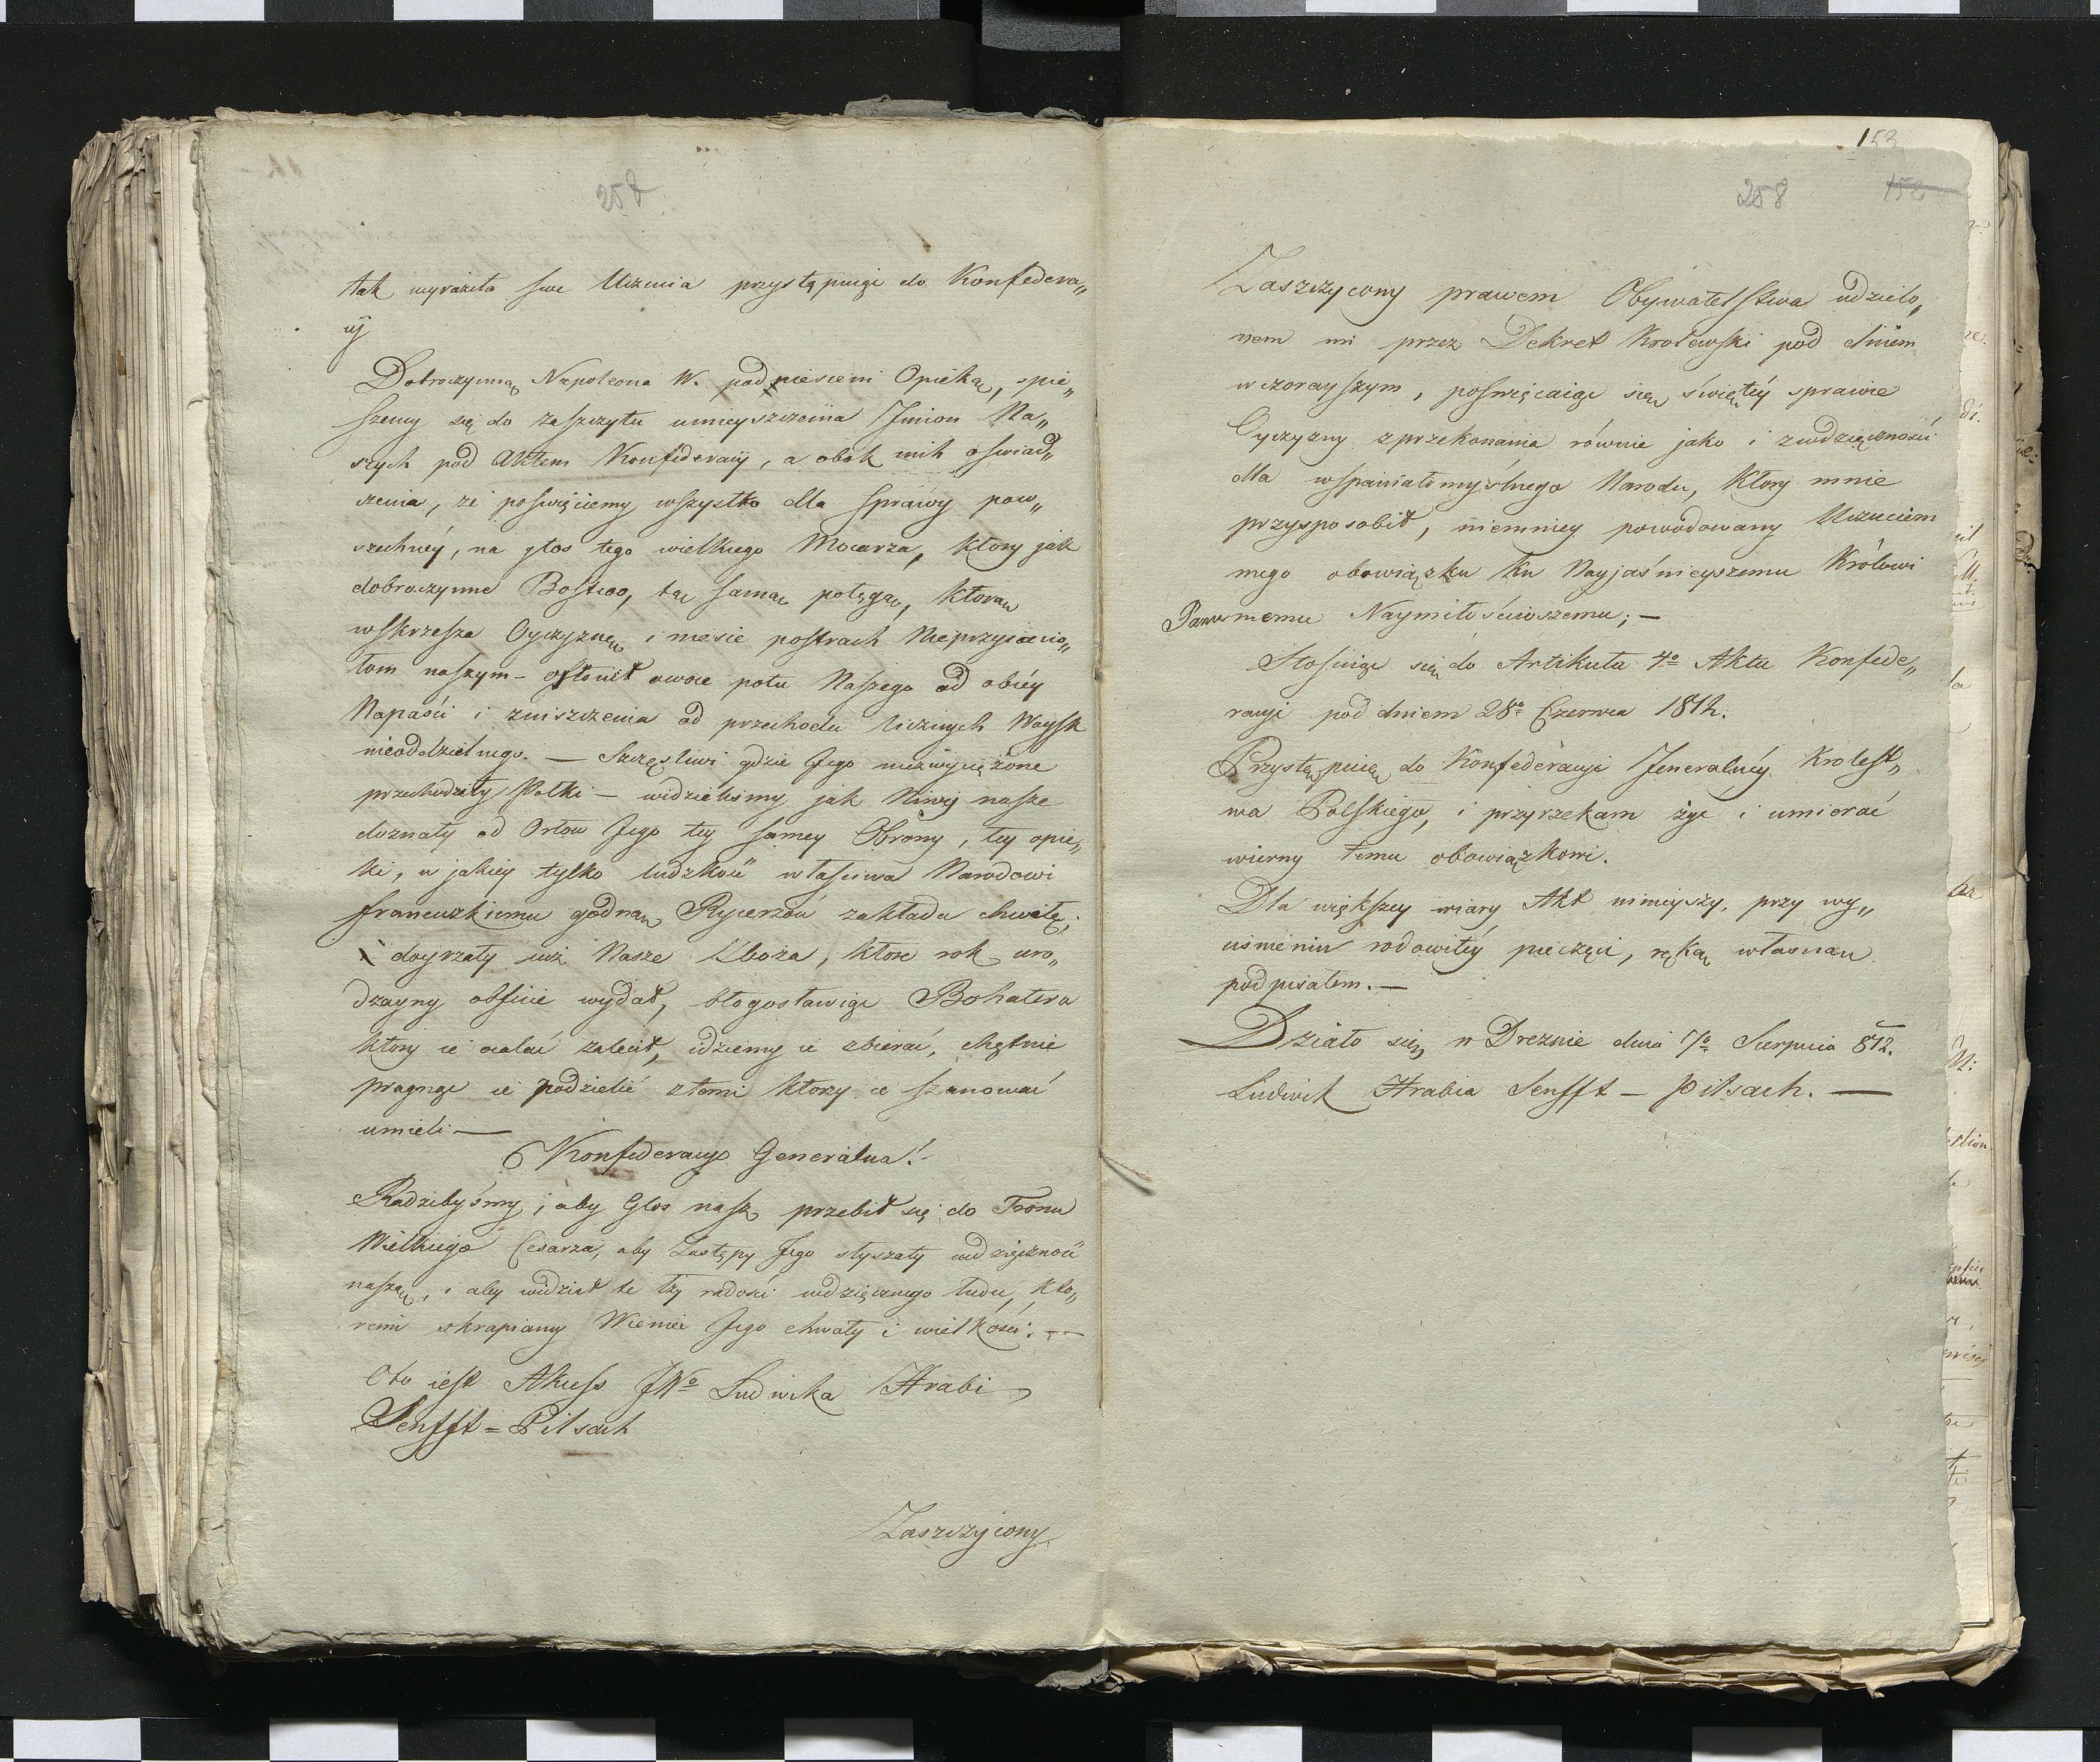 257
tak wyraziła swe Uczucia przystępuiąc do Konfedera„
cÿi
Dobroczynną Napoleona W. podniesieni Opieką, spie„
szemy się do zaszczytu umieyszczenia Imion Na„
szych pod Aktem Konfederacÿi, a obok nich oswiad„
czenia, że poswięciemy wszystko dla Sprawy pow„
szechnéy, na głos tego wielkiego Mocarza, który jak
dobroczynne Bostwo, tą samą potęgą, którą
wskrzesza Oyczyznę i niesie postrach Nieprzyiacio„
łom naszym – osłonił owoce potu Naszego od obcéy
Napaści i zniszczenia od przechodu licznych Woysk
nieoddzielnego. — Szczęsliwi gdzie Jego niezwyciężone
przechodziły Pułki — widzieliśmy jak Niwy nasze
doznały od Orłow Jego tey samey Obrony, tey opie„
ki, w jakiey tylko ludzkość właściwa Narodowi
francuzkiemu godną Rycerzów zakłada chwałę;
i doyrzały iuż Nasze Zboża, ktore rok uro„
dzayny obficie wydał, błogosławiąc Bohatera
ktory ie ocalać zalecił, idziemy ie zbierać, chętnie
pragnąc ie podzielić z temi ktorzy ie szanować
umieli —
Konfederacyo Generalna!
Radzibyśmy, aby Głos nasz przebił się do Tronu
Wielkiego Cesarza, aby Zastępy Jego słyszały wdzięczność
naszą, i aby widział te łzy radości wdzięcznego ludu, kto„
remi skrapiamy Wieniec Jego chwały i wielkości. —
Oto iest Akces JWo Ludwika Hrabi
Senfft = Pilsach
Zaszczycony
153
258
158
Zaszczycony prawem Obywatelstwa udzielo„
nem mi przez Dekret Krolewski pod dniem
wczorayszym, poswięcaiąc się świętéy sprawie
Oyczyzny z przekonania równie jako i z wdzięczności
dla wspaniałomyślnego Narodu, który mnie
przysposobił, niemniey powodowany Uczuciem
mego obowiązku ku Nayjaśnieyszemu Królowi
Panu memu Naymiłościwszemu; —
Stosuiąc się do Artikułu 4o Aktu Konfede„
racyi pod dniem 28o Czerwca 1812.
Przystępuię do Konfederacyi Jeneralnéy Krolest„
wa Polskiego, i przyrzekam żyć i umierać
wierny temu obowiązkowi.
Dla większey wiary Akt ninieyszy, przy wy„
ciśnieniu rodowitéy pieczęci, ręką własną
podpisałem. —
Działo się w Dreznie dnia 7o Sierpnia 812.
Ludwik Hrabia Senfft — Pilsach. —